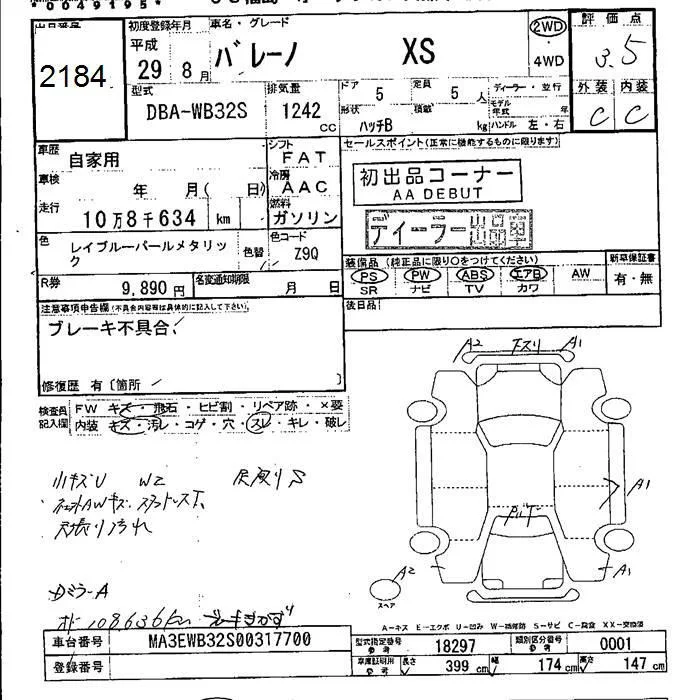 初度登録年月 車名・グレード 評価点
2184 平成 29年 8月 バレーノ XS 2WD ・ 4WD 3.5
型式 排気量 ドア 5 定員 5人 ディーラー・並行 外装 内装
DBA-WB32S 1242 cc 形状 ハッチB 積載 kg モデル年式 年 ハンドル 左・右 C C
車歴 自家用 シフト FAT セールスポイント(正常に機能するものに限ります)
車検 年 月( 日) 冷房 AAC 初出品コーナー
AA DEBUT
走行 10万8千634 km 燃料 ガソリン ディーラー出品車
色 レイブルーパールメタリック 色替 色コード Z9Q
装備品(純正品に限り○をつけてください) 新車保証書
PS PW ABS エアB AW 有・無
SR ナビ TV カワ
R券 9,890円 名変通知期限 月 日 後日品
注意事項申告欄(不具合内容等は具体的に記入して下さい)
ブレーキ不具合、
修復歴 有〔箇所 〕
検査員記入欄 FW キズ・飛石・ヒビ割・リペア跡・×要
内装 キズ・汚レ・コゲ・穴・スレ・キレ・破レ
A2 下スリ A1
小キズU W2
A1
A2 A1
スペア
ミラーA
108636km
A-キズ E-エクボ U-凹み W-補修跡 S-サビ C-腐食 XX-交換済
車台番号 MA3EWB32S00317700 型式指定番号 参考 18297 類別区分番号 参考 0001
登録番号 車庫証明用 参考 長さ 399cm 幅 174cm 高さ 147cm